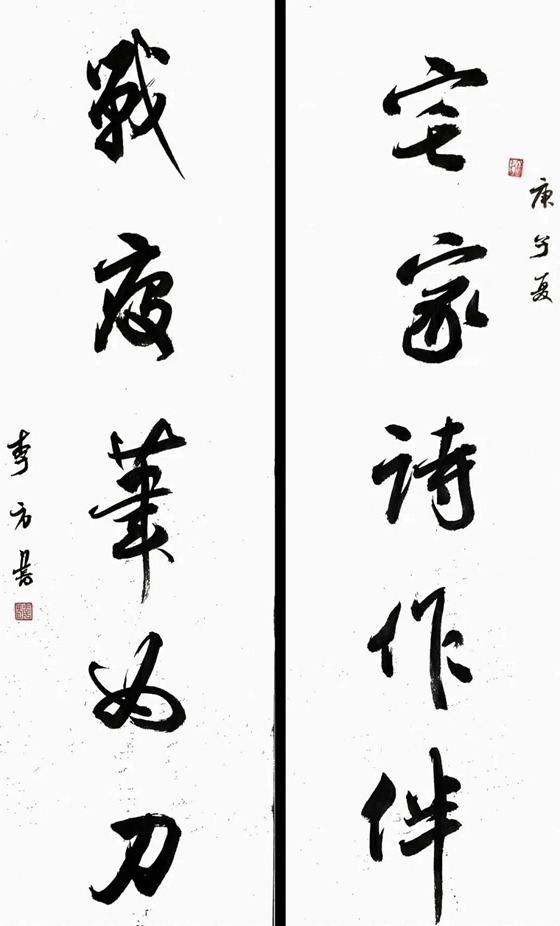 庚子夏
宅家詩作伴
戰疫筆为刀
李方書